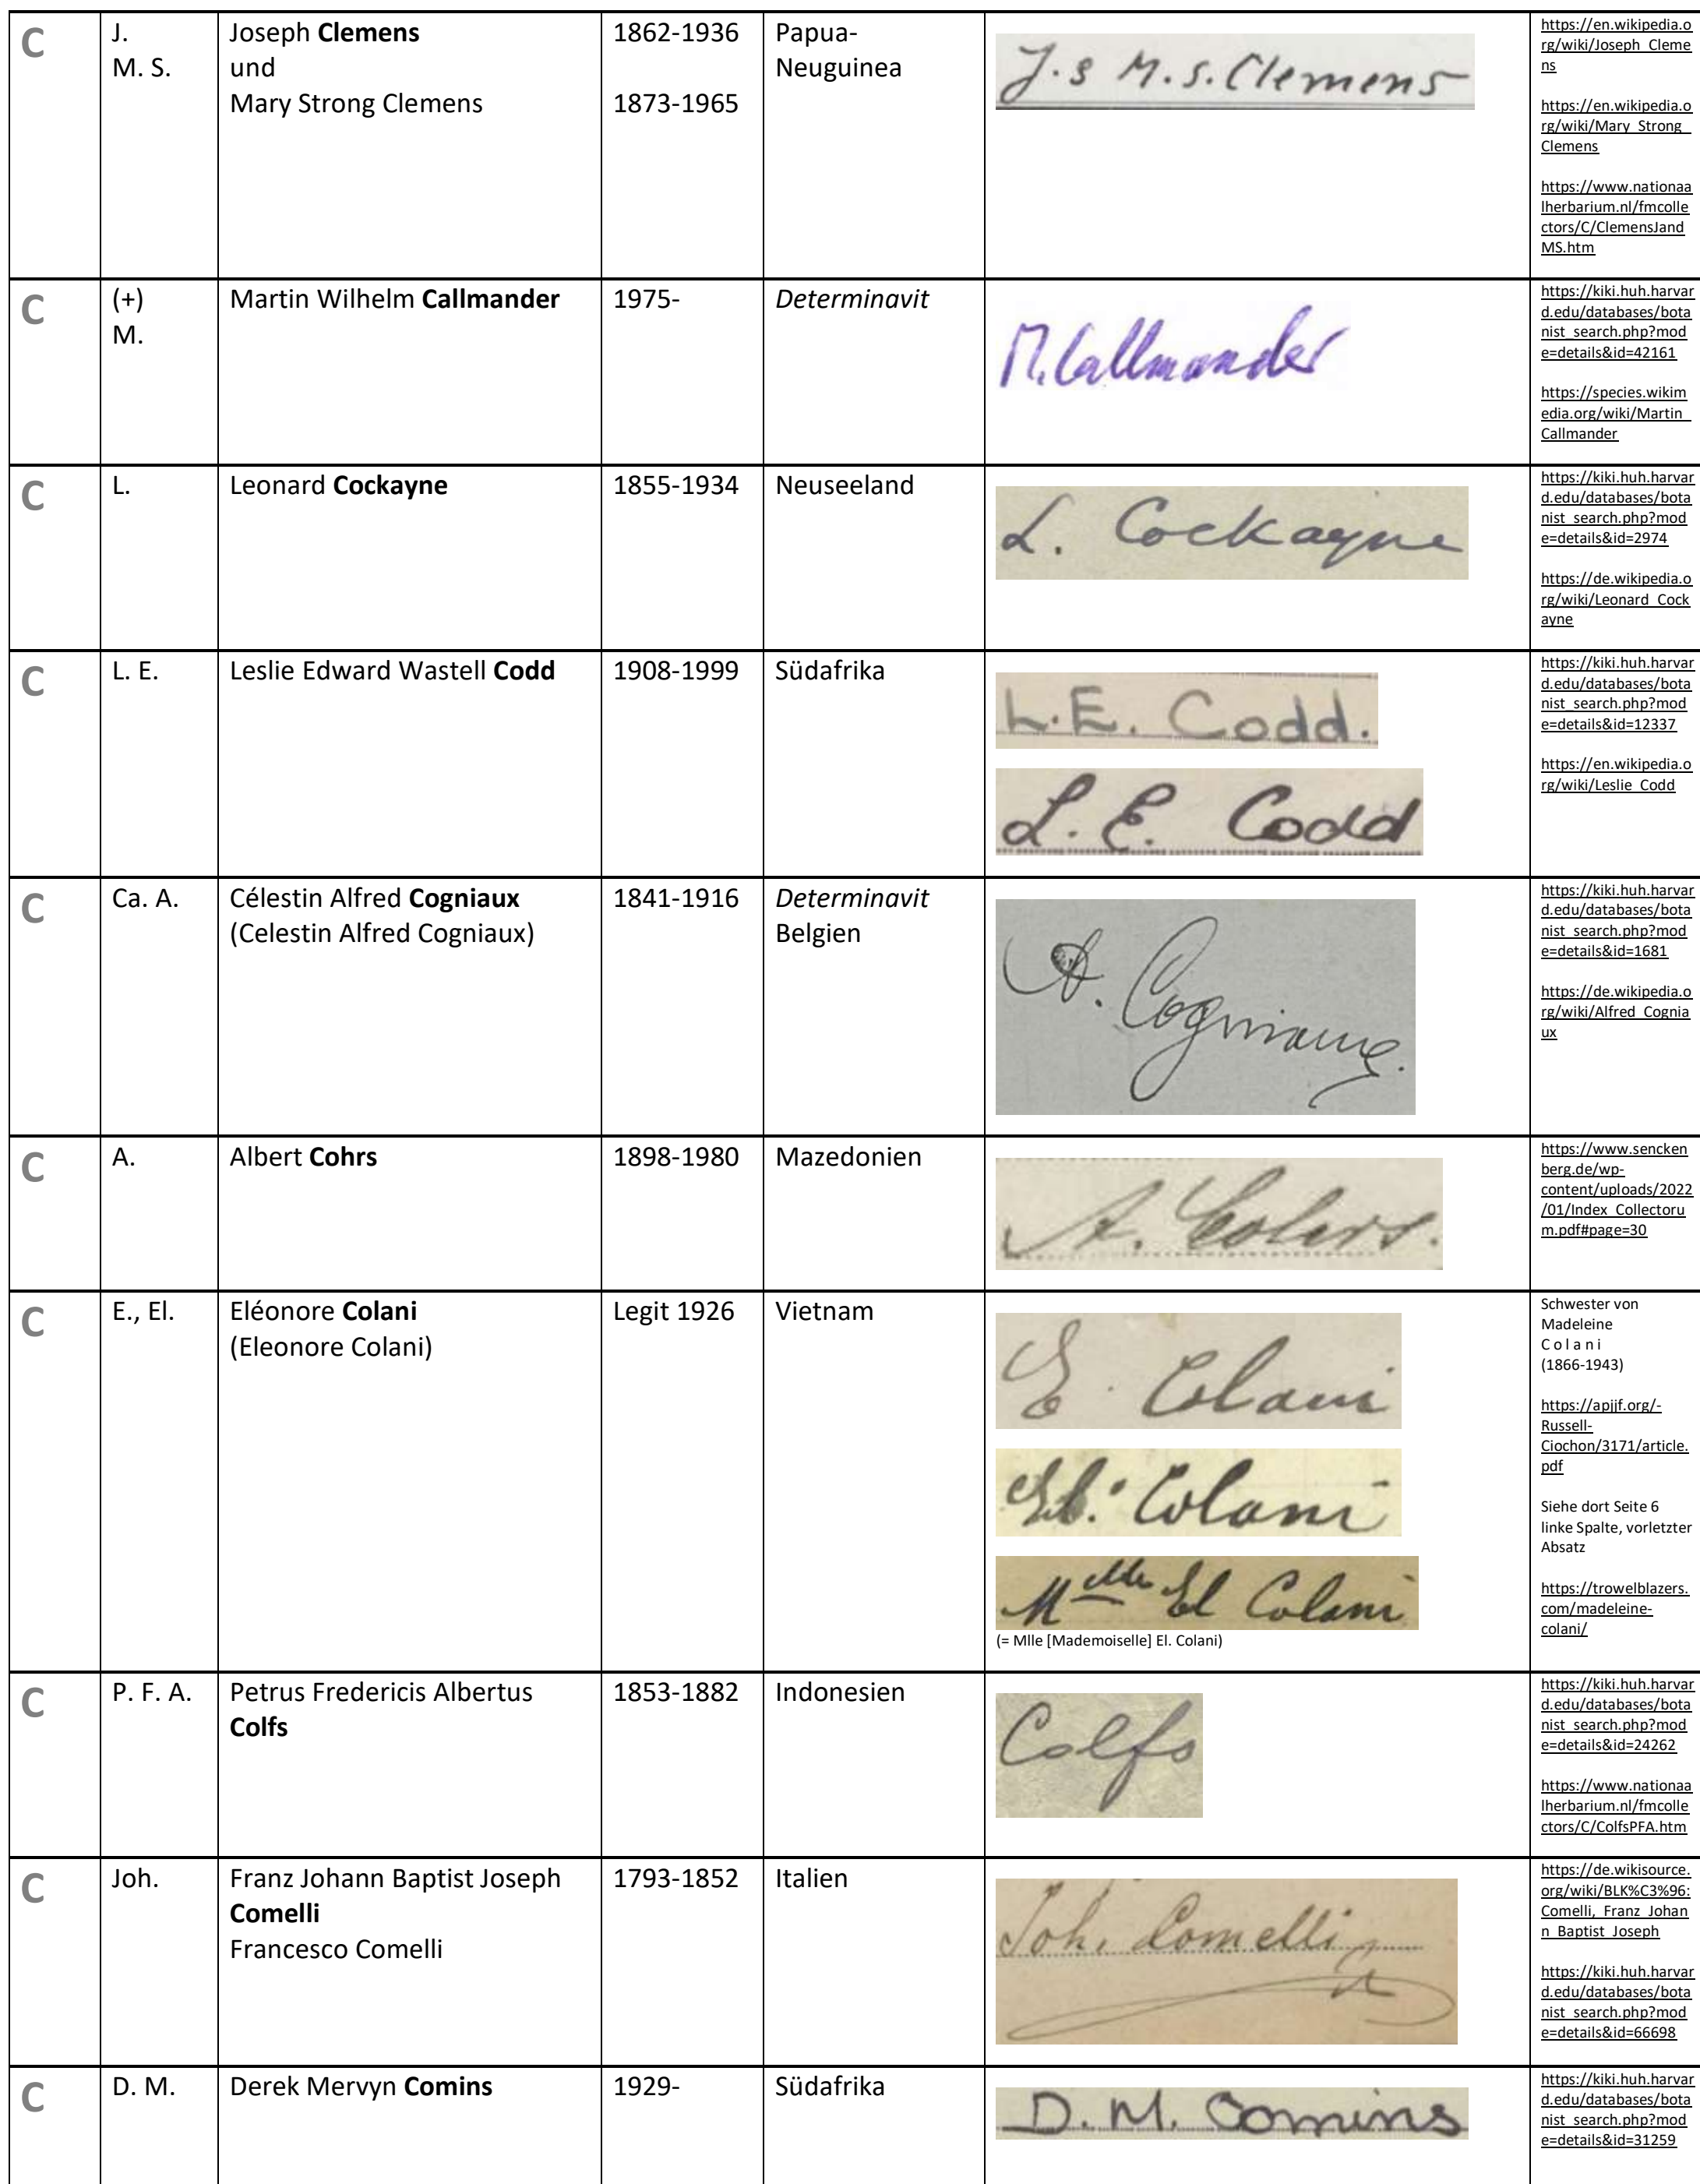 C
J.
M. S.
Joseph Clemens
und
Mary Strong Clemens
1862-1936
1873-1965
Papua-
Neuguinea
J. s M. s. Clemens
https://en.wikipedia.o
rg/wiki/Joseph_Cleme
ns
https://en.wikipedia.o
rg/wiki/Mary_Strong_
Clemens
https://www.nationaa
lherbarium.nl/fmcolle
ctors/C/ClemensJand
MS.htm
C
(+)
M.
Martin Wilhelm Callmander
1975-
Determinavit
M. Callmander
https://kiki.huh.harvar
d.edu/databases/bota
nist_search.php?mod
e=details&id=42161
https://species.wikim
edia.org/wiki/Martin_
Callmander
C
L.
Leonard Cockayne
1855-1934
Neuseeland
L. Cockayne
https://kiki.huh.harvar
d.edu/databases/bota
nist_search.php?mod
e=details&id=2974
https://de.wikipedia.o
rg/wiki/Leonard_Cock
ayne
C
L. E.
Leslie Edward Wastell Codd
1908-1999
Südafrika
L.E. Codd.
L. E. Codd
https://kiki.huh.harvar
d.edu/databases/bota
nist_search.php?mod
e=details&id=12337
https://en.wikipedia.o
rg/wiki/Leslie_Codd
C
Ca. A.
Célestin Alfred Cogniaux
(Celestin Alfred Cogniaux)
1841-1916
Determinavit
Belgien
A. Cogniaux.
https://kiki.huh.harvar
d.edu/databases/bota
nist_search.php?mod
e=details&id=1681
https://de.wikipedia.o
rg/wiki/Alfred_Cognia
ux
C
A.
Albert Cohrs
1898-1980
Mazedonien
A. Cohrs.
https://www.sencken
berg.de/wp-
content/uploads/2022
/01/Index_Collectoru
m.pdf#page=30
C
E., El.
Eléonore Colani
(Eleonore Colani)
Legit 1926
Vietnam
E. Colani
El. Colani
Mlle El Colani
(= Mlle [Mademoiselle] El. Colani)
Schwester von
Madeleine
C o l a n i
(1866-1943)
https://apjjf.org/-
Russell-
Ciochon/3171/article.
pdf
Siehe dort Seite 6
linke Spalte, vorletzter
Absatz
https://trowelblazers.
com/madeleine-
colani/
C
P. F. A.
Petrus Fredericis Albertus
Colfs
1853-1882
Indonesien
Colfs
https://kiki.huh.harvar
d.edu/databases/bota
nist_search.php?mod
e=details&id=24262
https://www.nationaa
lherbarium.nl/fmcolle
ctors/C/ColfsPFA.htm
C
Joh.
Franz Johann Baptist Joseph
Comelli
Francesco Comelli
1793-1852
Italien
Joh. Comelli
https://de.wikisource.
org/wiki/BLK%C3%96:
Comelli,_Franz_Johan
n_Baptist_Joseph
https://kiki.huh.harvar
d.edu/databases/bota
nist_search.php?mod
e=details&id=66698
C
D. M.
Derek Mervyn Comins
1929-
Südafrika
D. M. Comins
https://kiki.huh.harvar
d.edu/databases/bota
nist_search.php?mod
e=details&id=31259